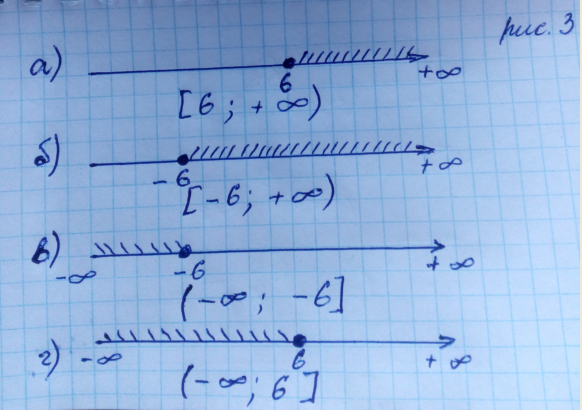 рис. 3
а)
6
+∞
[6; +∞)
б)
-6
+∞
[-6; +∞)
в)
-∞
-6
+∞
(-∞; -6]
г)
-∞
6
+∞
(-∞; 6]